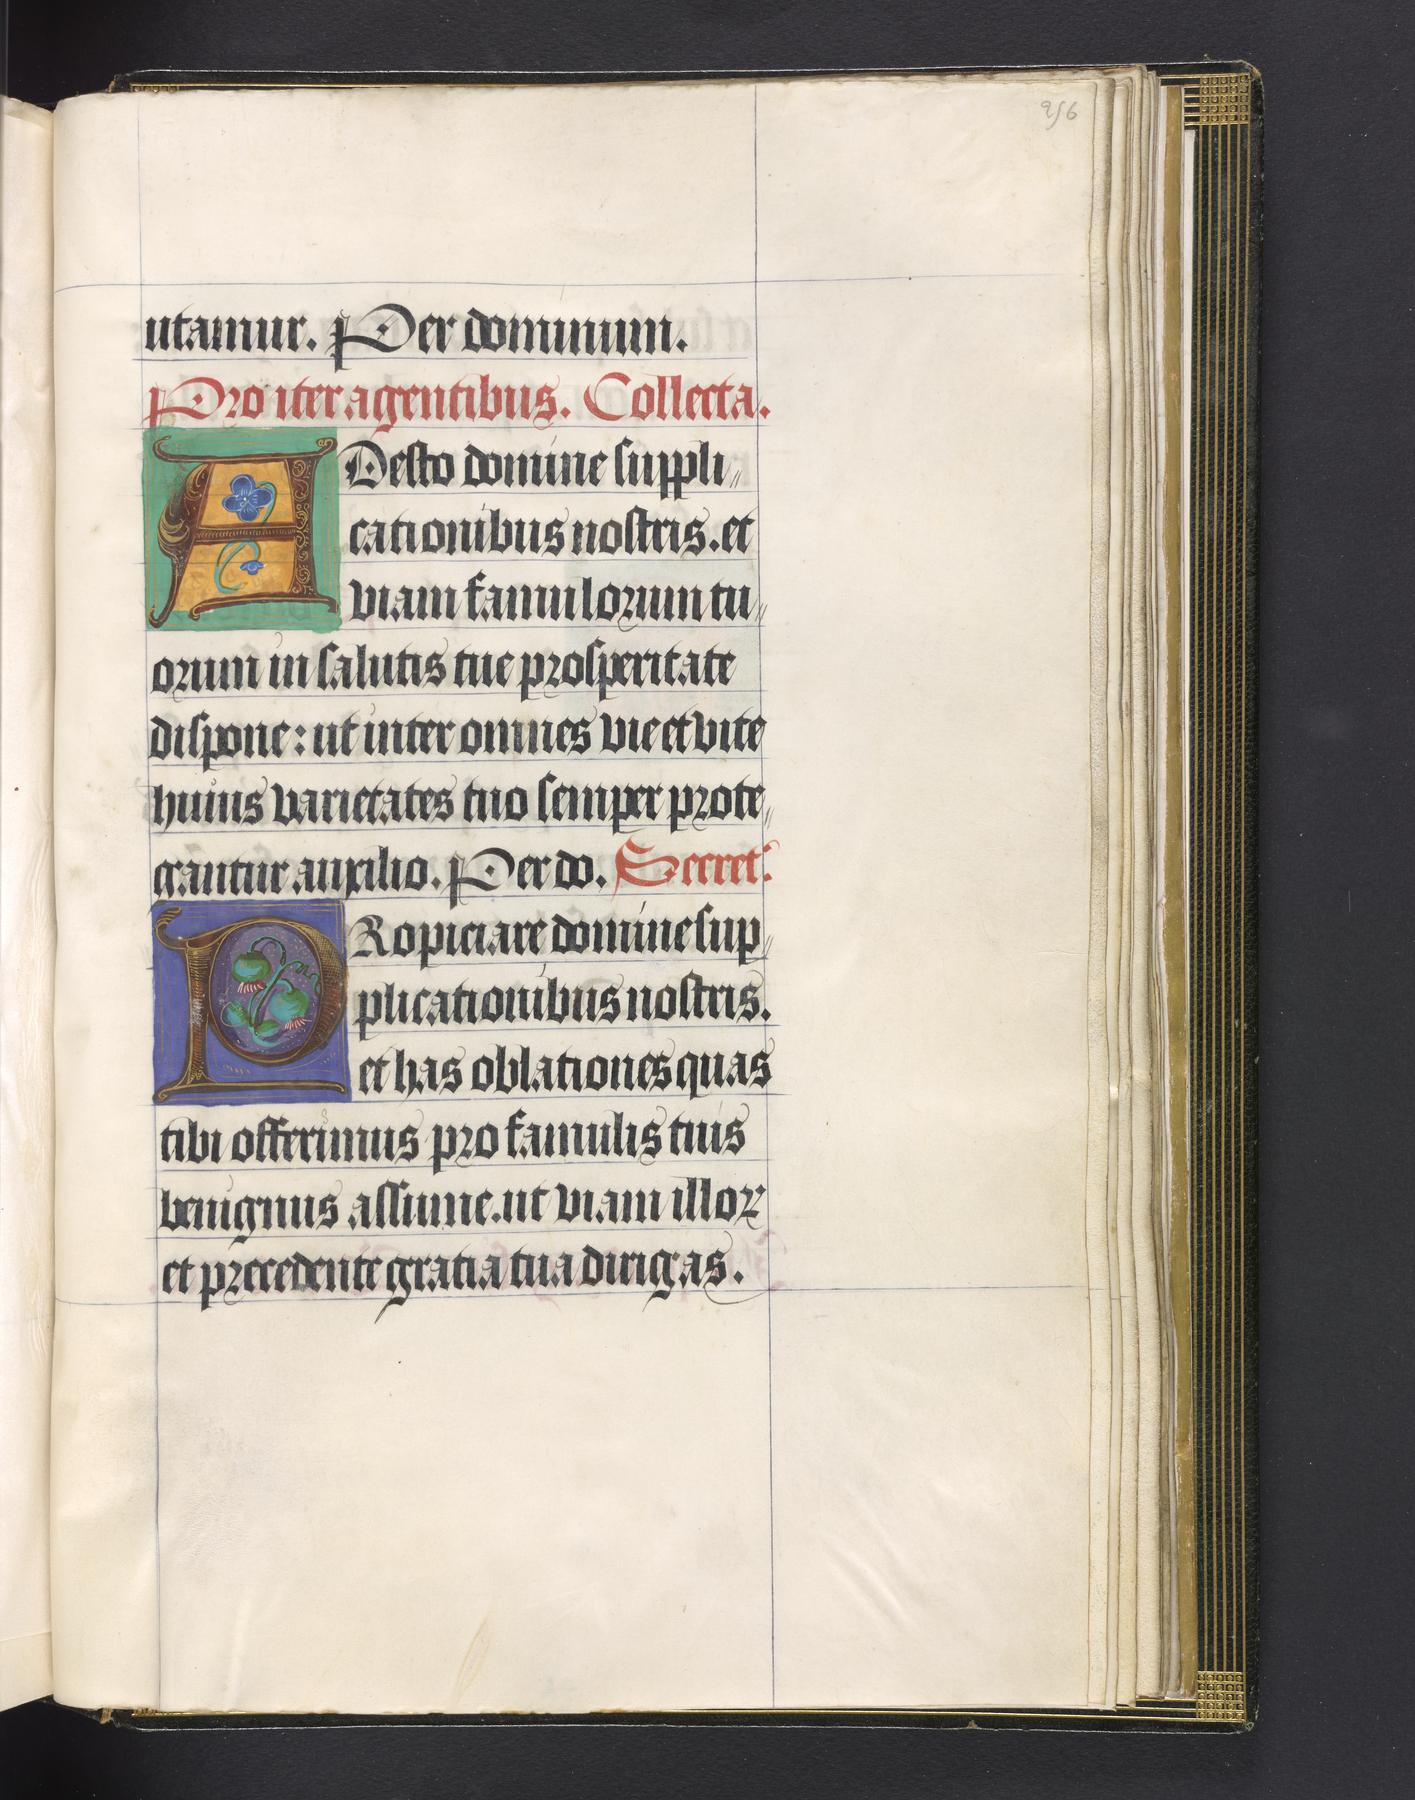 256
utamur. Per dominum.
Pro iter agentibus. Collecta.
ADesto domine suppli〃
cationibus nostris. et
viam famulorum tu〃
orum in salutis tue prosperitate
dispone: ut inter omnes vie et vite
huius varietates tuo semper prote〃
gantur auxilio. Per do. Secret.
PRopiciare domine sup〃
plicationibus nostris.
et has oblationes quas
tibi offerimus pro famulis tuis
benignus assume. ut viam illoꝝ
et precedente gratia tua dirigas.